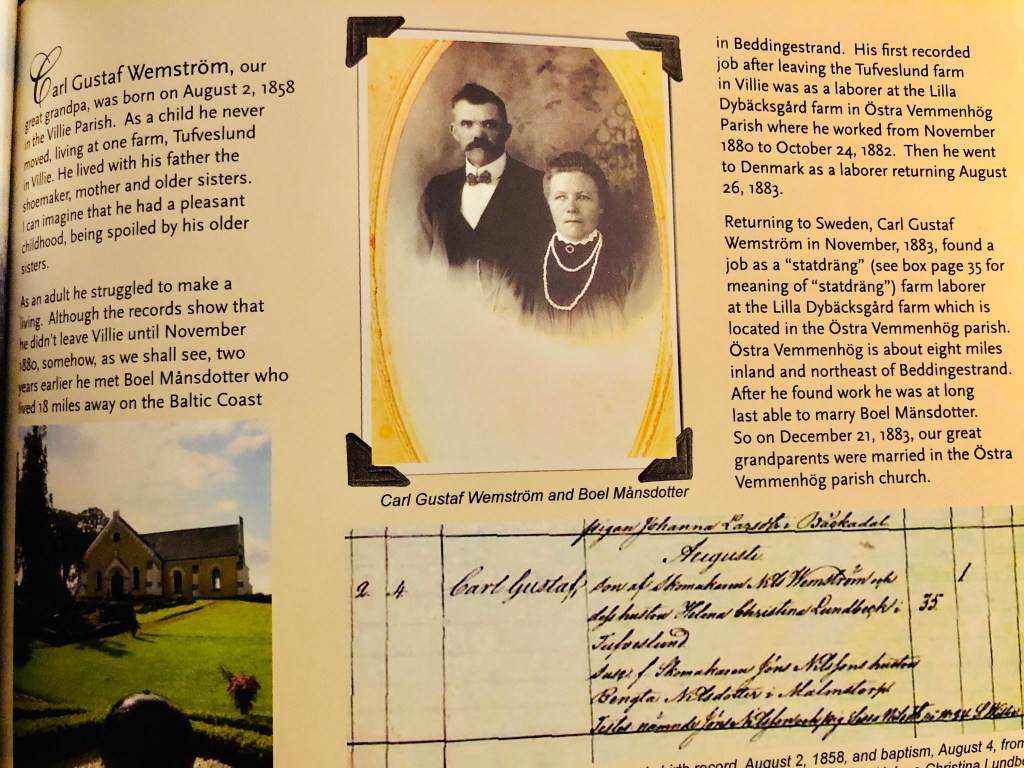 Carl Gustaf Wemström, our
great grandpa, was born on August 2, 1858
in the Villie Parish. As a child he never
moved, living at one farm, Tufveslund
in Villie. He lived with his father the
shoemaker, mother and older sisters.
I can imagine that he had a pleasant
childhood, being spoiled by his older
sisters.
As an adult he struggled to make a
living. Although the records show that
he didn't leave Villie until November
1880, somehow, as we shall see, two
years earlier he met Boel Månsdotter who
lived 18 miles away on the Baltic Coast
Carl Gustaf Wemström and Boel Månsdotter
in Beddingestrand. His first recorded
job after leaving the Tufveslund farm
in Villie was as a laborer at the Lilla
Dybäcksgård farm in Östra Vemmenhög
Parish where he worked from November
1880 to October 24, 1882. Then he went
to Denmark as a laborer returning August
26, 1883.
Returning to Sweden, Carl Gustaf
Wemström in November, 1883, found a
job as a “statdräng” (see box page 35 for
meaning of “statdräng”) farm laborer
at the Lilla Dybäcksgård farm which is
located in the Östra Vemmenhög parish.
Östra Vemmenhög is about eight miles
inland and northeast of Beddingestrand.
After he found work he was at long
last able to marry Boel Mänsdotter.
So on December 21, 1883, our great
grandparents were married in the Östra
Vemmenhög parish church.
pigan Johanna Larsdr i Bäckadal
Augusti
2. 4. Carl Gustaf, son af Skomakaren Nils Wemström och 1
dess hustru Helena Christina Lundbeck i 35
Tufveslund
Susc. f. Skomakaren Jöns Nilssons hustru
Bengta Nilsdotter i Malmstorp
Testes nämnde Jöns Nilsson och pig
birth record, August 2, 1858, and baptism, August 4, from
Christina Lundbe